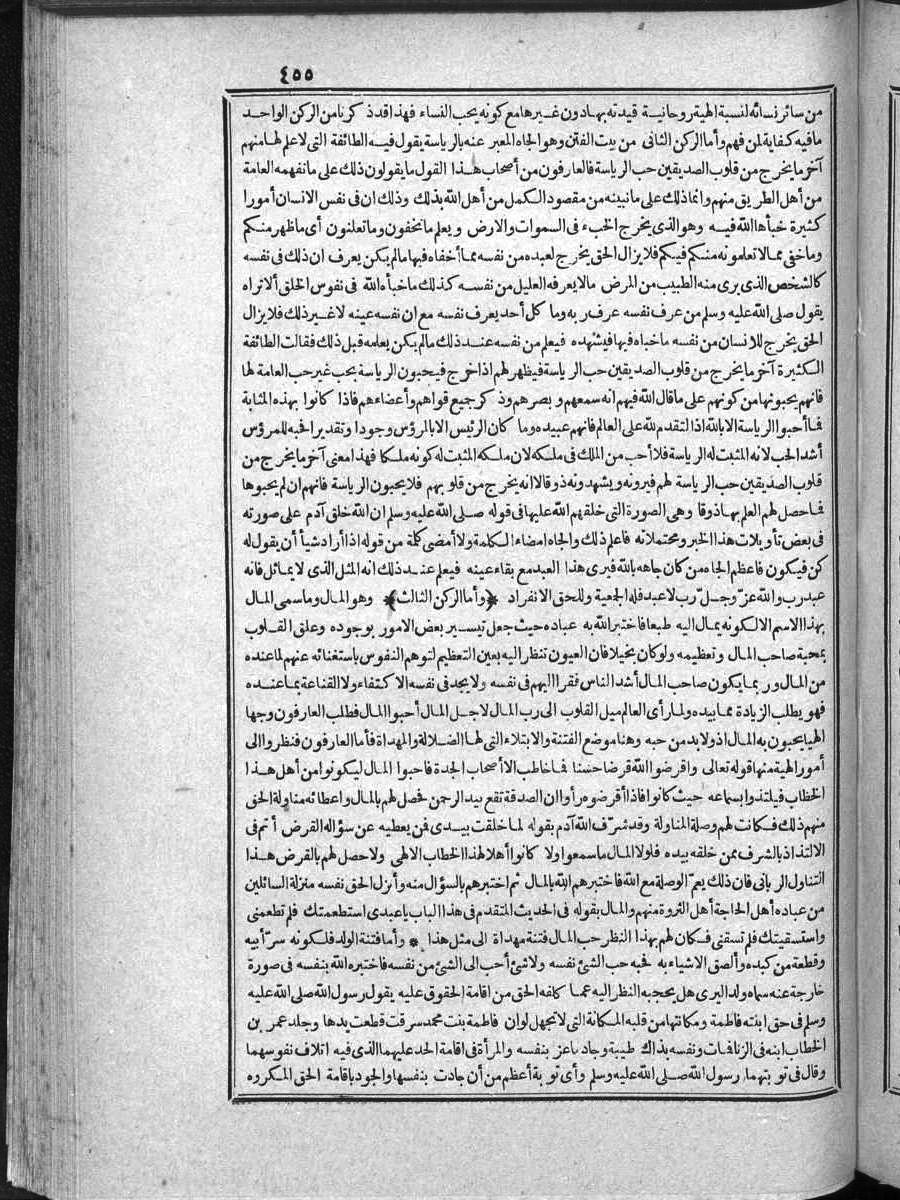 ٤٥٥
من سائر نسائه لنسبة الهية روحانية قيدته بها دون غيرها مع كونه يحب النساء فهذا قد ذكرنا من الركن الواحد
ما فيه كفاية لمن فهم وأما الركن الثانى من بيت الفتن وهو الجاه المعبر عنه بالرياسة يقول فيه الطائفة التى لا علم لها منهم
آخر ما يخرج من قلوب الصديقين حب الرياسة فالعارفون من أصحاب هذا القول ما يقولون ذلك على ما تفهمه العامة
من أهل الطريق منهم وانما ذلك على ما نبينه من مقصود الكمل من أهل الله بذلك وذلك ان فى نفس الانسان أمورا
كثيرة خبأها الله فيه وهو الذى يخرج الخبء فى السموات والارض ويعلم ما تخفون وما تعلنون أى ما ظهر منكم
وما خفى مما لا تعلمونه منكم فيكم فلا يزال الحق يخرج لعبده من نفسه مما أخفاه فيها ما لم يكن يعرف ان ذلك فى نفسه
كالشخص الذى يرى منه الطبيب من المرض ما لا يعرفه العليل من نفسه كذلك ما خبأه الله فى نفوس الخلق ألا تراه
يقول صلى الله عليه وسلم من عرف نفسه عرف ربه وما كل أحد يعرف نفسه مع ان نفسه عينه لا غير ذلك فلا يزال
الحق يخرج للانسان من نفسه ما خباه فيها فيشهده فيعلم من نفسه عند ذلك ما لم يكن يعلمه قبل ذلك فقالت الطائفة
الكثيرة آخر ما يخرج من قلوب الصديقين حب الرياسة فيظهر لهم اذا خرج فيحبون الرياسة بحب غير حب العامة لها
فانهم يحبونها من كونهم على ما قال الله فيهم انه سمعهم وبصرهم وذكر جميع قواهم وأعضاءهم فاذا كانوا بهذه المثابة
فما أحبوا الرياسة الا بالله اذ التقدم لله على العالم فانهم عبيده وما كان الرئيس الا بالمرؤس وجودا وتقديرا فحبه للمرؤس
أشد الحب لانه المثبت له الرياسة فلا أحب من الملك فى ملكه لان ملكه المثبت له كونه ملكا فهذا معنى آخر ما يخرج من
قلوب الصديقين حب الرياسة لهم فيرونه ويشهدونه ذوقا لا انه يخرج من قلوبهم فلا يحبون الرياسة فانهم ان لم يحبوها
فما حصل لهم العلم بها ذوقا وهى الصورة التى خلقهم الله عليها فى قوله صلى الله عليه وسلم ان الله خلق آدم على صورته
فى بعض تأويلات هذا الخبر ومحتملاته فاعلم ذلك والجاه امضاء الكلمة ولا أمضى كلمة من قوله اذا أراد شيأ أن يقول له
كن فيكون فاعظم الجاه من كان جاهه بالله فيرى هذا العبد مع بقاء عينه فيعلم عند ذلك انه المثل الذى لا يماثل فانه
عبد رب والله عز وجل رب لا عبد فله الجمعية وللحق الانفراد ﴿وأما الركن الثالث﴾ وهو المال وما سمى المال
بهذا الاسم الا لكونه يمال اليه طبعا فاختبر الله به عباده حيث جعل تيسير بعض الامور بوجوده وعلق القلوب
بمحبة صاحب المال وتعظيمه ولو كان بخيلا فان العيون تنظر اليه بعين التعظيم لتوهم النفوس باستغنائه عنهم لما عنده
من المال وربما يكون صاحب المال أشد الناس فقرا اليهم فى نفسه ولا يجد فى نفسه الاكتفاء ولا القناعة بما عنده
فهو يطلب الزيادة مما بيده ولما رأى العالم ميل القلوب الى رب المال لاجل المال أحبوا المال فطلب العارفون وجها
الهيا يحبون به المال اذ ولا بد من حبه وهنا موضع الفتنة والابتلاء التى لها الضلالة والمهداة فأما العارفون فنظروا الى
أمور الهية منها قوله تعالى واقرضوا الله قرضا حسنا فما خاطب الا أصحاب الجدة فاحبوا المال ليكونوا من أهل هذا
الخطاب فيلتذوا بسماعه حيث كانوا فاذا أقرضوه رأوا ان الصدقة تقع بيد الرحمن فحصل لهم بالمال واعطائه مناولة الحق
منهم ذلك فكانت لهم وصلة المناولة وقد شرف الله آدم بقوله لما خلقت بيدى فمن يعطيه عن سؤاله القرض أتم فى
الالتذاذ بالشرف ممن خلقه بيده فلولا المال ما سمعوا ولا كانوا أهلا لهذا الخطاب الالهى ولا حصل لهم بالقرض هذا
التناول الربانى فان ذلك يعم الوصلة مع الله فاختبرهم الله بالمال ثم اختبرهم بالسؤال منه وأنزل الحق نفسه منزلة السائلين
من عباده أهل الحاجة أهل الثروة منهم والمال بقوله فى الحديث المتقدم فى هذا الباب يا عبدى استطعمتك فلم تطعمنى
واستسقيتك فلم تسقنى فكان لهم بهذا النظر حب المال فتنة مهداة الى مثل هذا * وأما فتنة الولد فلكونه سر أبيه
وقطعة من كبده وألصق الاشياء به فحبه حب الشئ نفسه ولا شئ أحب الى الشئ من نفسه فاختبره الله بنفسه فى صورة
خارجة عنه سماه ولدا ليرى هل يحجبه النظر اليه عما كلفه الحق من اقامة الحقوق عليه يقول رسول الله صلى الله عليه
وسلم فى حق ابنته فاطمة ومكانتها من قلبه المكانة التى لا تجهل لو ان فاطمة بنت محمد سرقت قطعت يدها وجلد عمر بن
الخطاب ابنه فى الزنا فمات ونفسه بذاك طيبة وجاد ماعز بنفسه والمرأة فى اقامة الحد عليهما الذى فيه اتلاف نفوسهما
وقال فى توبتهما رسول الله صلى الله عليه وسلم وأى توبة أعظم من أن جادت بنفسها والجود باقامة الحق المكروه